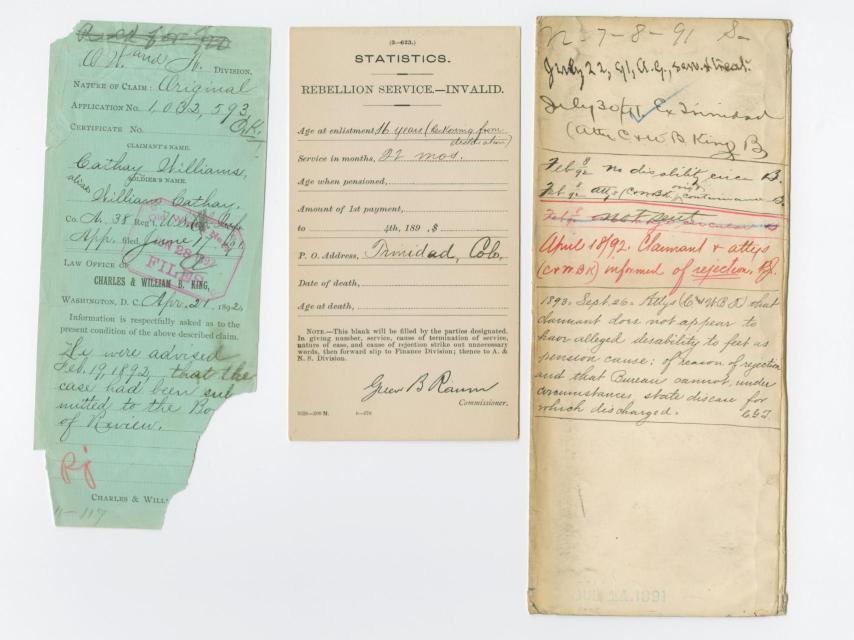 O.W. and N. DIVISION.
NATURE OF CLAIM: Original
APPLICATION NO. 1,032,593
CERTIFICATE NO. O.K.
CLAIMANT'S NAME.
Cathay Williams,
SOLDIER'S NAME.
alias William Cathay.
Co. A. 38 Reg't, U.S.
App. filed June 17
FILES
LAW OFFICE OF
CHARLES & WILLIAM B. KING,
WASHINGTON, D. C. Apr. 21, 1892.
Information is respectfully asked as to the
present condition of the above described claim.
We were advised
Feb. 19, 1892, that the
case had been sub
mitted to the Bo
of Review.
Rj
CHARLES & WILL
11-117
(3—623.)
STATISTICS.
REBELLION SERVICE.—INVALID.
Age at enlistment, 16 years (Reckoning from
declaration)
Service in months, 22 mos.
Age when pensioned,
Amount of 1st payment,
to 4th, 189 , $
P. O. Address, Trinidad, Colo.
Date of death,
Age at death,
NOTE.—This blank will be filled by the parties designated.
In giving number, service, cause of termination of service,
nature of case, and cause of rejection strike out unnecessary
words, then forward slip to Finance Division; thence to A. &
N. S. Division.
Green B Raum
Commissioner.
6—276
7-8-91 S-
July 22, 91, A.G., serv. & treat.
July 30/91 Ex Trinidad
(Atty C & W B King B)
Feb 8/92 no disability B.
Feb
not sent
April 18/92. Claimant & attys
(C & W B K) informed of rejection.
1893. Sept. 26. Attys (C & W B K) that
claimant does not appear to
have alleged disability to feet as
pension cause: of reason of rejection
and that Bureau cannot, under
circumstances, state disease for
which discharged.
1891